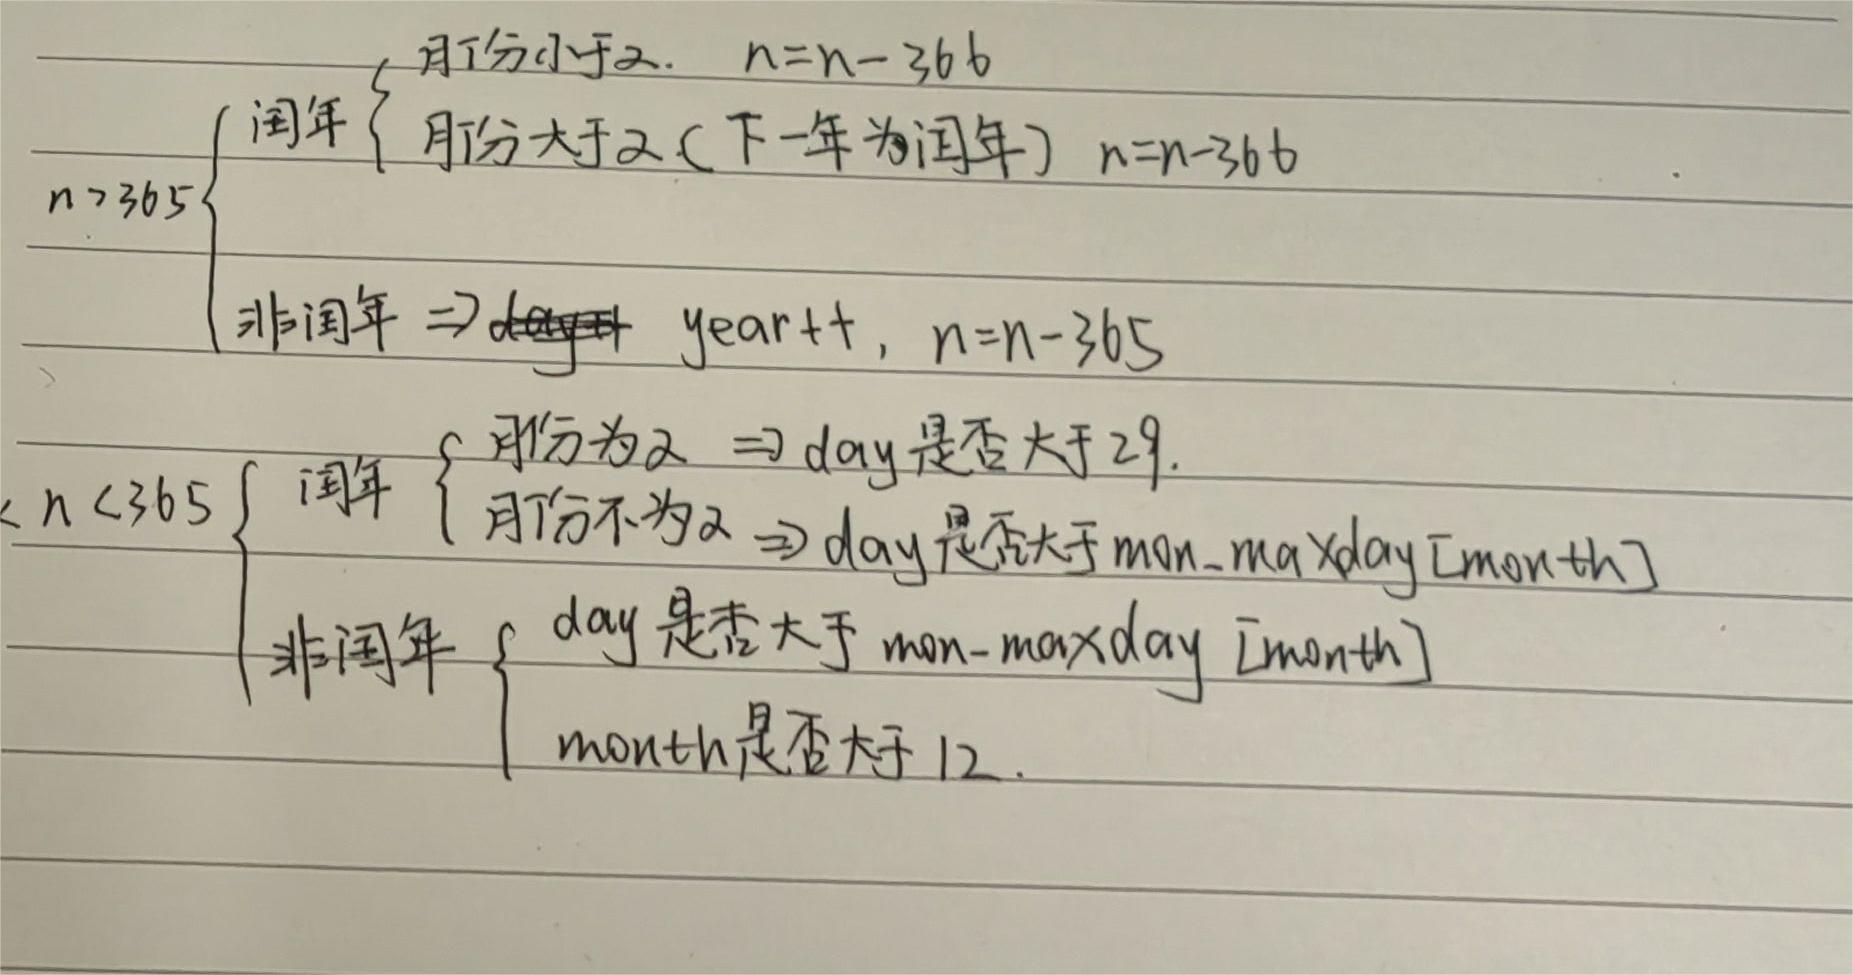 月份小于2. n=n-366
闰年
月份大于2(下一年为闰年) n=n-366
n>365
非闰年 => year++, n=n-365
月份为2 => day是否大于29.
< n<365 闰年
月份不为2 => day是否大于mon_maxday[month]
day是否大于 mon-maxday [month]
非闰年
month是否大于12.